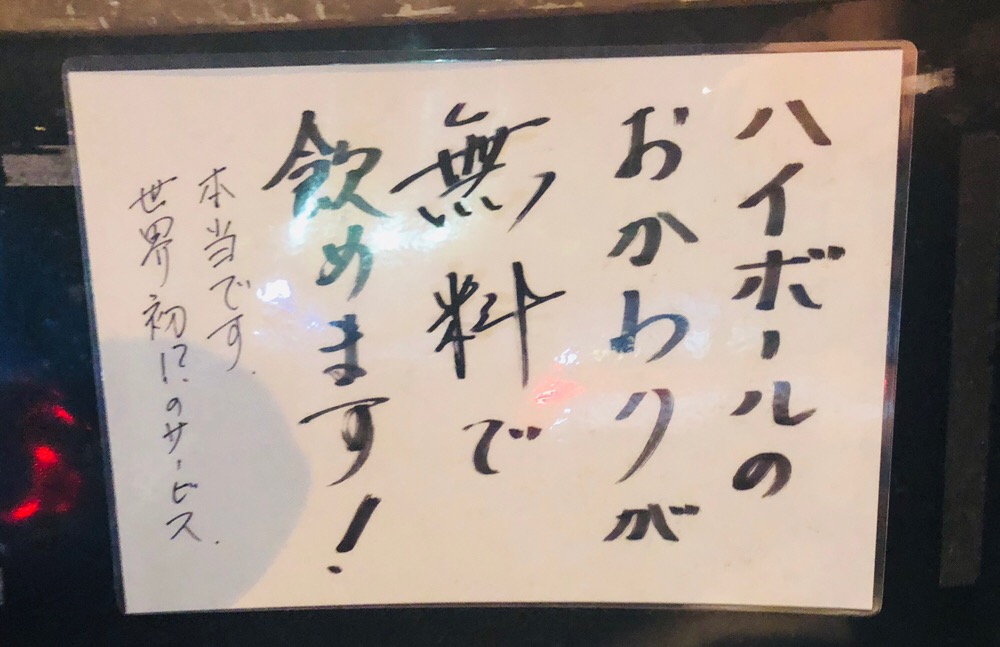 ハイボールの
おかわりが
無料で
飲めます!
本当です.
世界初!?のサービス.